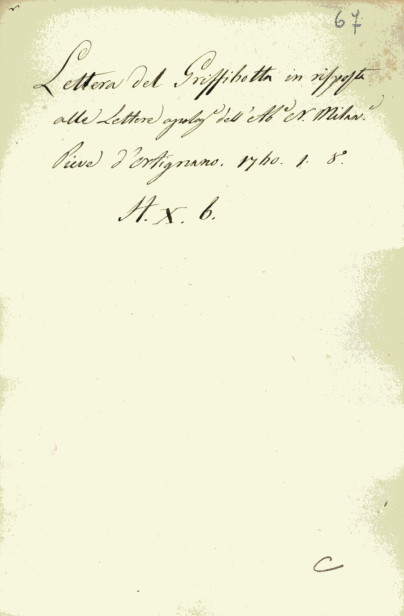 67
Lettera del Griffibetta in risposta
alle Lettere apolog.e dell' Ab.e N. Milan.e
Pieve d'Ortignano. 1760. 1. 8°.
H. X. 6.
C